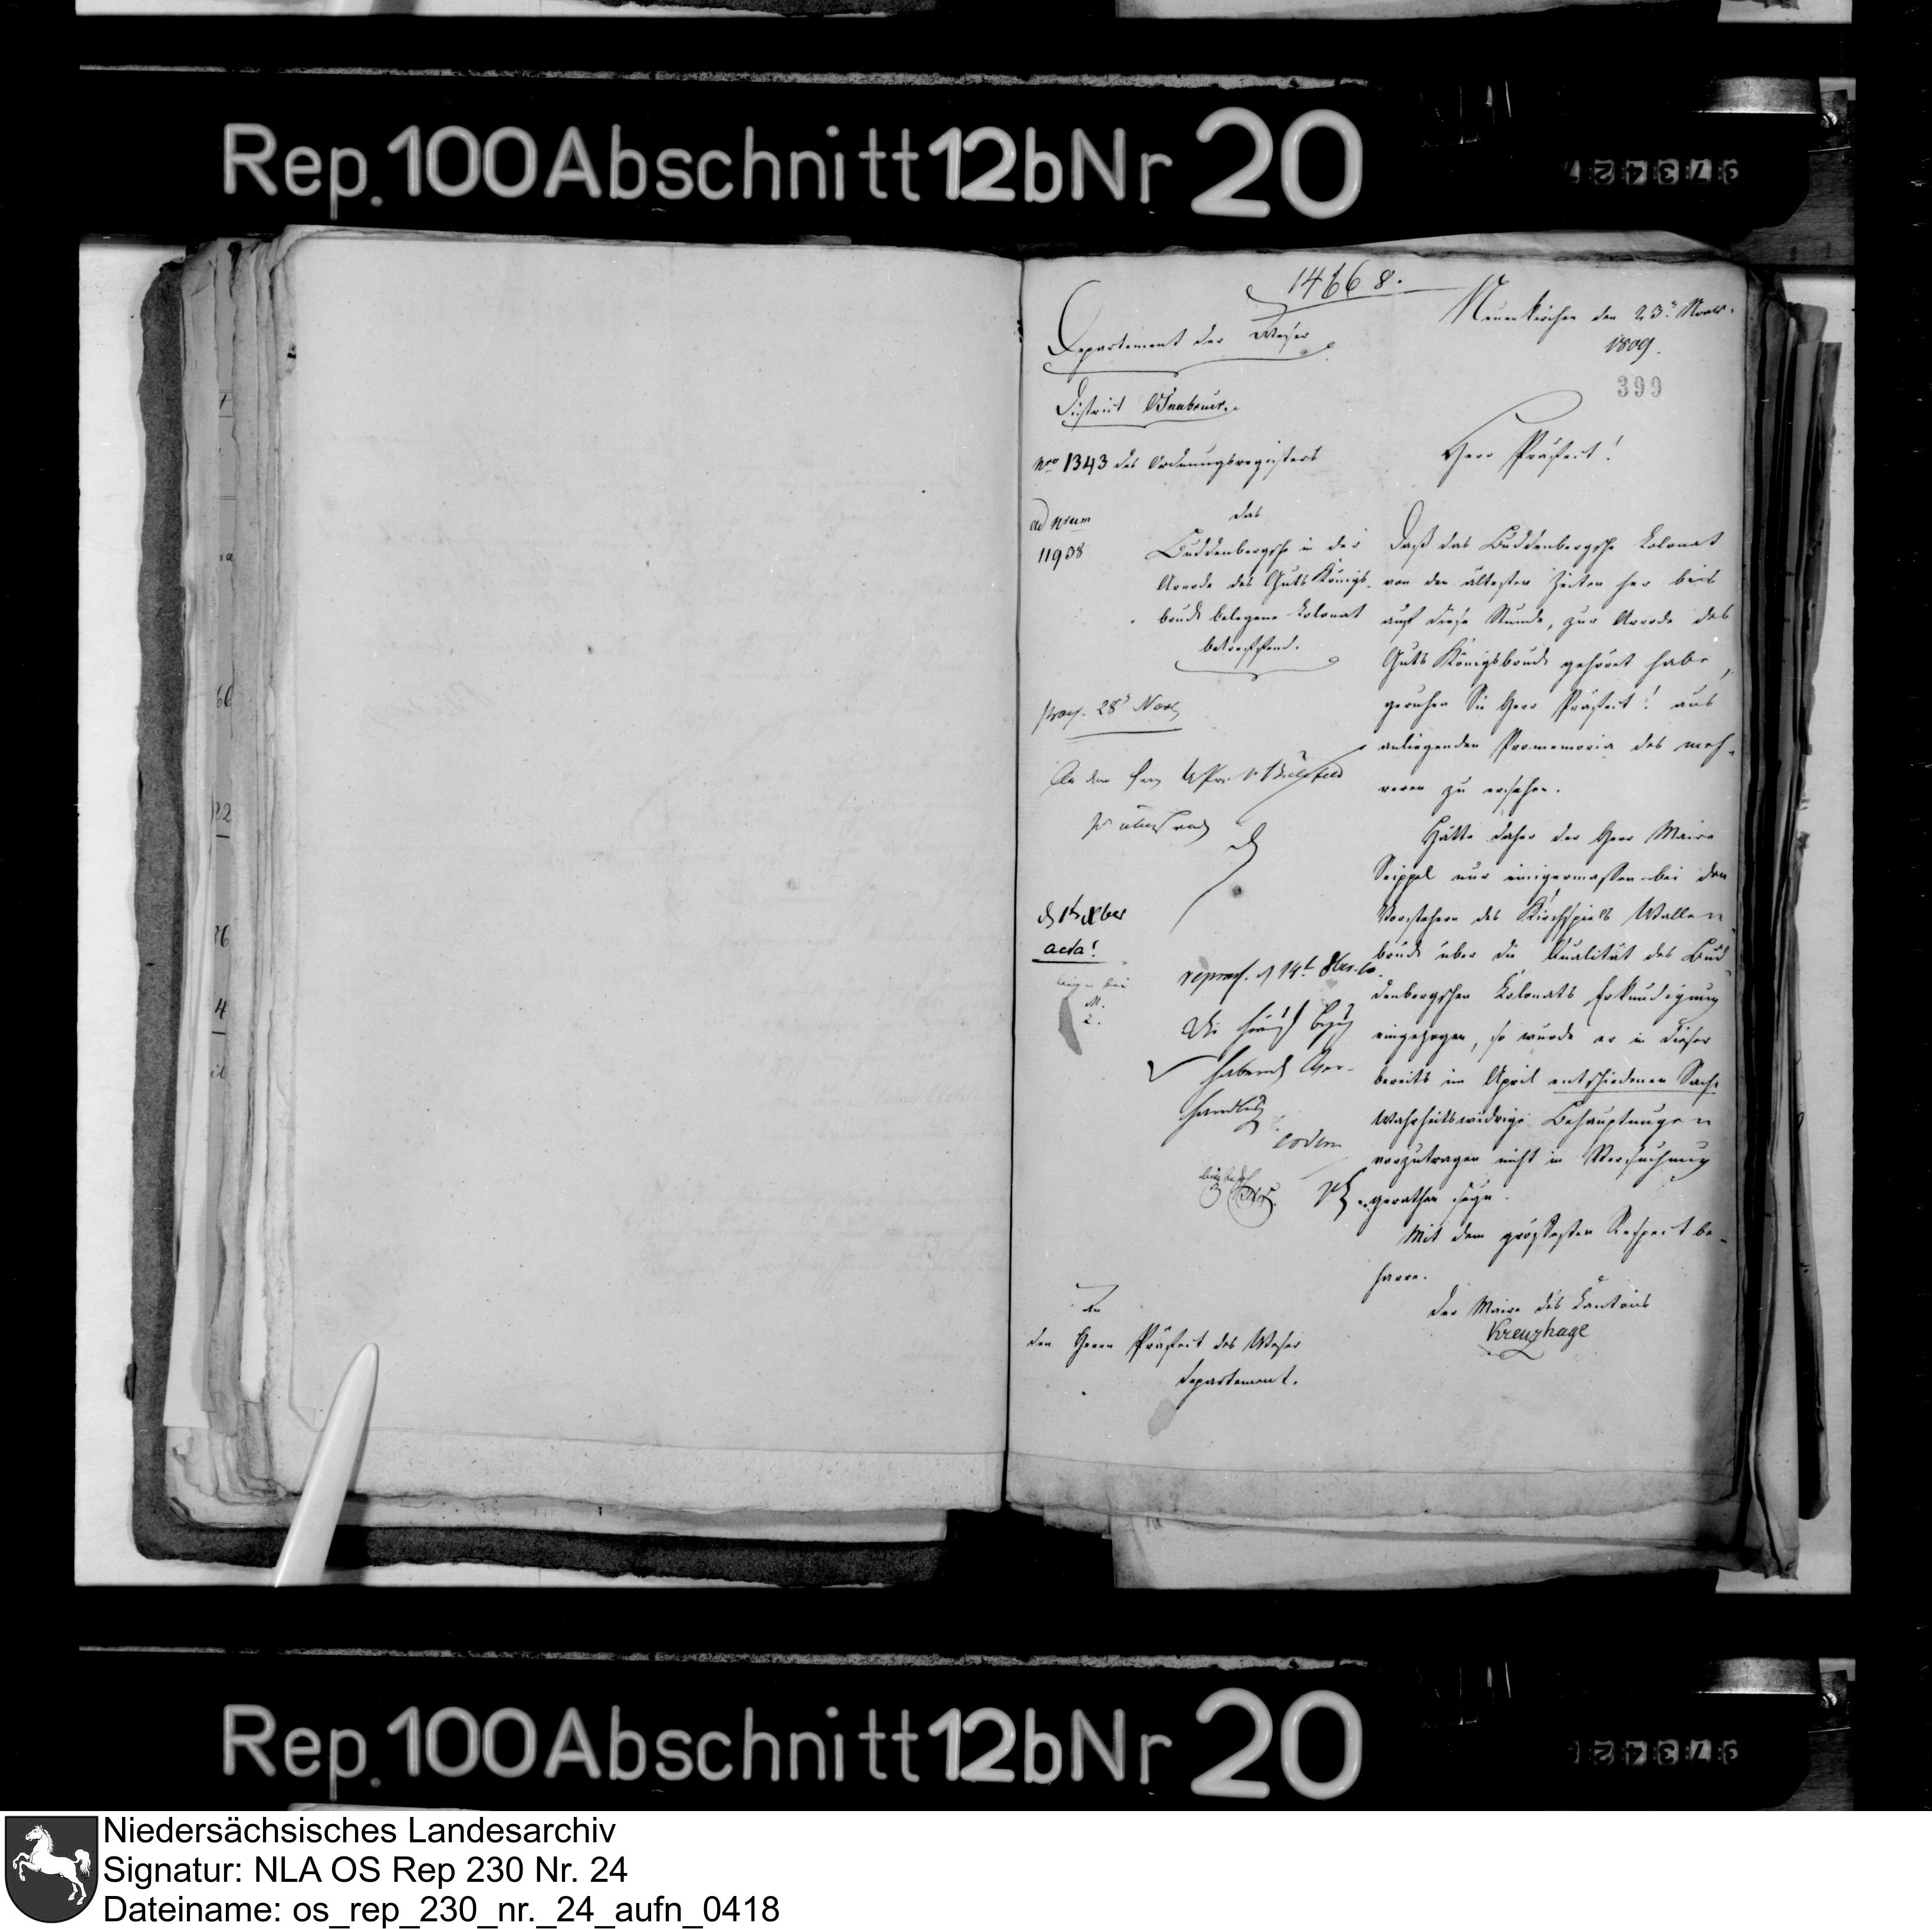 Rep. 100 Abschnitt 12b Nr 20
14668.
Departement der Weser
District Osnabrück.
Neuenkirchen den 23t Novbr.
1809.
399
Nro 1343 des Ordnungsregisters
Herr Präfect!
ad Num
11938
das
Buddenbergsche in der
Arrode des Guts Königs-
brück belegene Kolonat
betreffend.
Daß das Buddenbergsche Kolonat
von den ältesten Zeiten her bis
auf diese Stunde, zur Arrode des
Guts Königsbrück gehöret habe,
geruhen Sie Herr Präfect! aus
anliegenden Promemoria des meh-
reren zu ersehen.
Hätte daher der Herr Maire
Seippel nur einigermassen bei den
Vorstehern des Kirchspiels Wallen-
brück über die Qualität des Bud-
denbergschen Kolonats Erkundigung
eingezogen, so würde er in dieser
bereits im April entschiedenen Sache
Wahrheitswidrige Behauptungen
vorzutragen nicht in Versuchung
gerathen seyn.
Mit dem größesten Respect be-
harre.
der Maire des Kantons
Kreuzhage
praes. 28t Nov
An den
d 1t Xber
acta!
reprod. d 14t Xbr.
habende Ver-
handlung
eodem
An
den Herrn Präfect des Weser
departement.
Rep. 100 Abschnitt 12b Nr 20
Niedersächsisches Landesarchiv
Signatur: NLA OS Rep 230 Nr. 24
Dateiname: os_rep_230_nr._24_aufn_0418